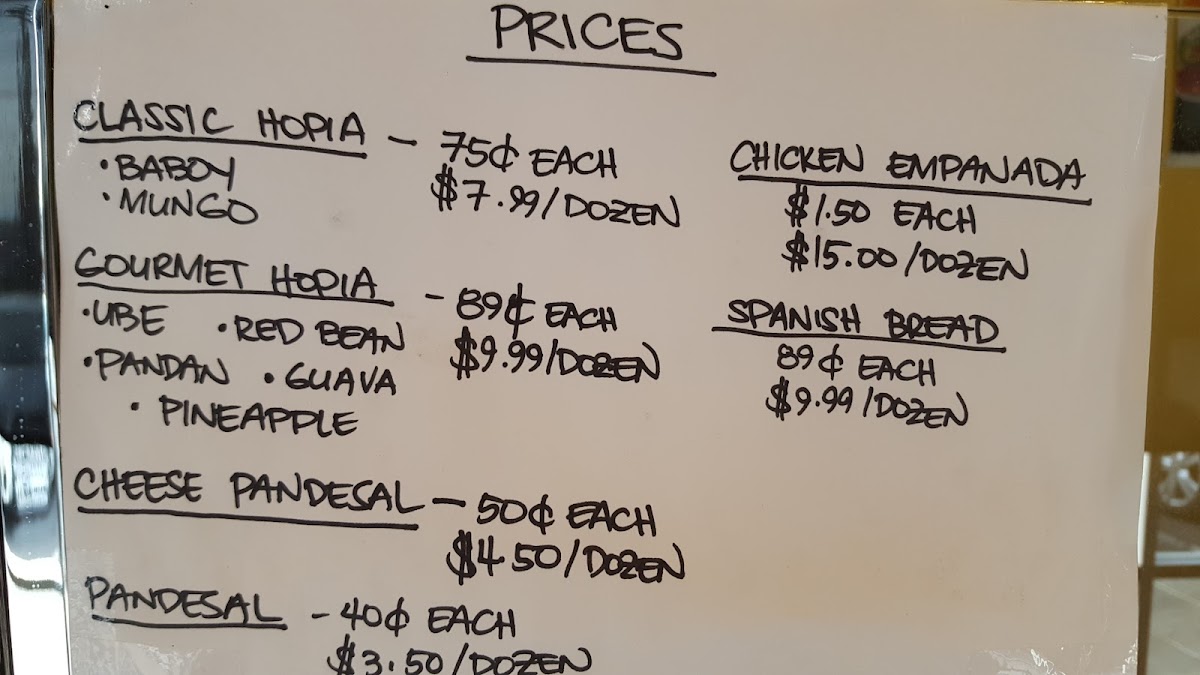 PRICES
CLASSIC HOPIA - 75¢ EACH
• BABOY
$7.99/DOZEN
• MUNGO
GOURMET HOPIA - 89¢ EACH
• UBE • RED BEAN
$9.99/DOZEN
• PANDAN • GUAVA
• PINEAPPLE
CHEESE PANDESAL - 50¢ EACH
$4.50/DOZEN
PANDESAL - 40¢ EACH
$3.50/DOZEN
CHICKEN EMPANADA
$1.50 EACH
$15.00/DOZEN
SPANISH BREAD
89¢ EACH
$9.99/DOZEN